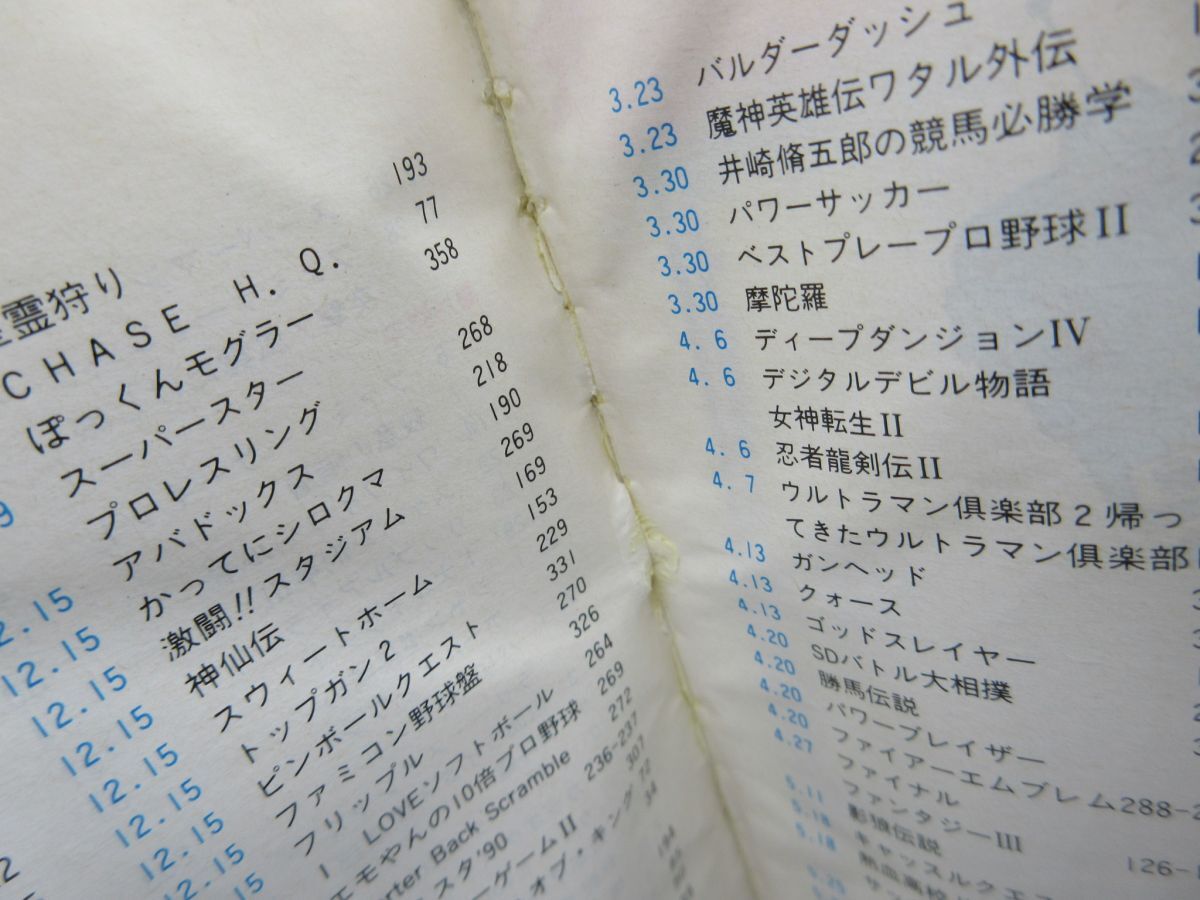 霊狩り 193
CHASE H. Q. 77
ぽっくんモグラー 358
スーパースター
プロレスリング 268
アバドックス 218
かってにシロクマ 190
12.15 激闘!!スタジアム 269
12.15 神仙伝 169
12.15 スウィートホーム 153
12.15 トップガン2 229
12.15 ピンボールクエスト 331
12.15 ファミコン野球盤 270
12.15 フリップル 326
12.15 I LOVEソフトボール 264
エモやんの10倍プロ野球 269
rter Back Scramble 272
スタ'90 236-237
ーゲームII 307
オブ・キング 72
34
194
3.23 バルダーダッシュ
3.23 魔神英雄伝ワタル外伝
3.30 井崎脩五郎の競馬必勝学
3.30 パワーサッカー
3.30 ベストプレープロ野球II
3.30 摩陀羅
4. 6 ディープダンジョンIV
4. 6 デジタルデビル物語
女神転生II
4. 6 忍者龍剣伝II
4. 7 ウルトラマン倶楽部2帰っ
てきたウルトラマン倶楽部
4.13 ガンヘッド
4.13 クォース
4.13 ゴッドスレイヤー
4.20 SDバトル大相撲
4.20 勝馬伝説
4.20 パワーブレイザー
4.20 ファイアーエムブレム 288-2
4.27 ファイナル
ファンタジーIII 126-1
5.11 影狼伝説
5.18 キャッスルクエス
5.18 熱血高校